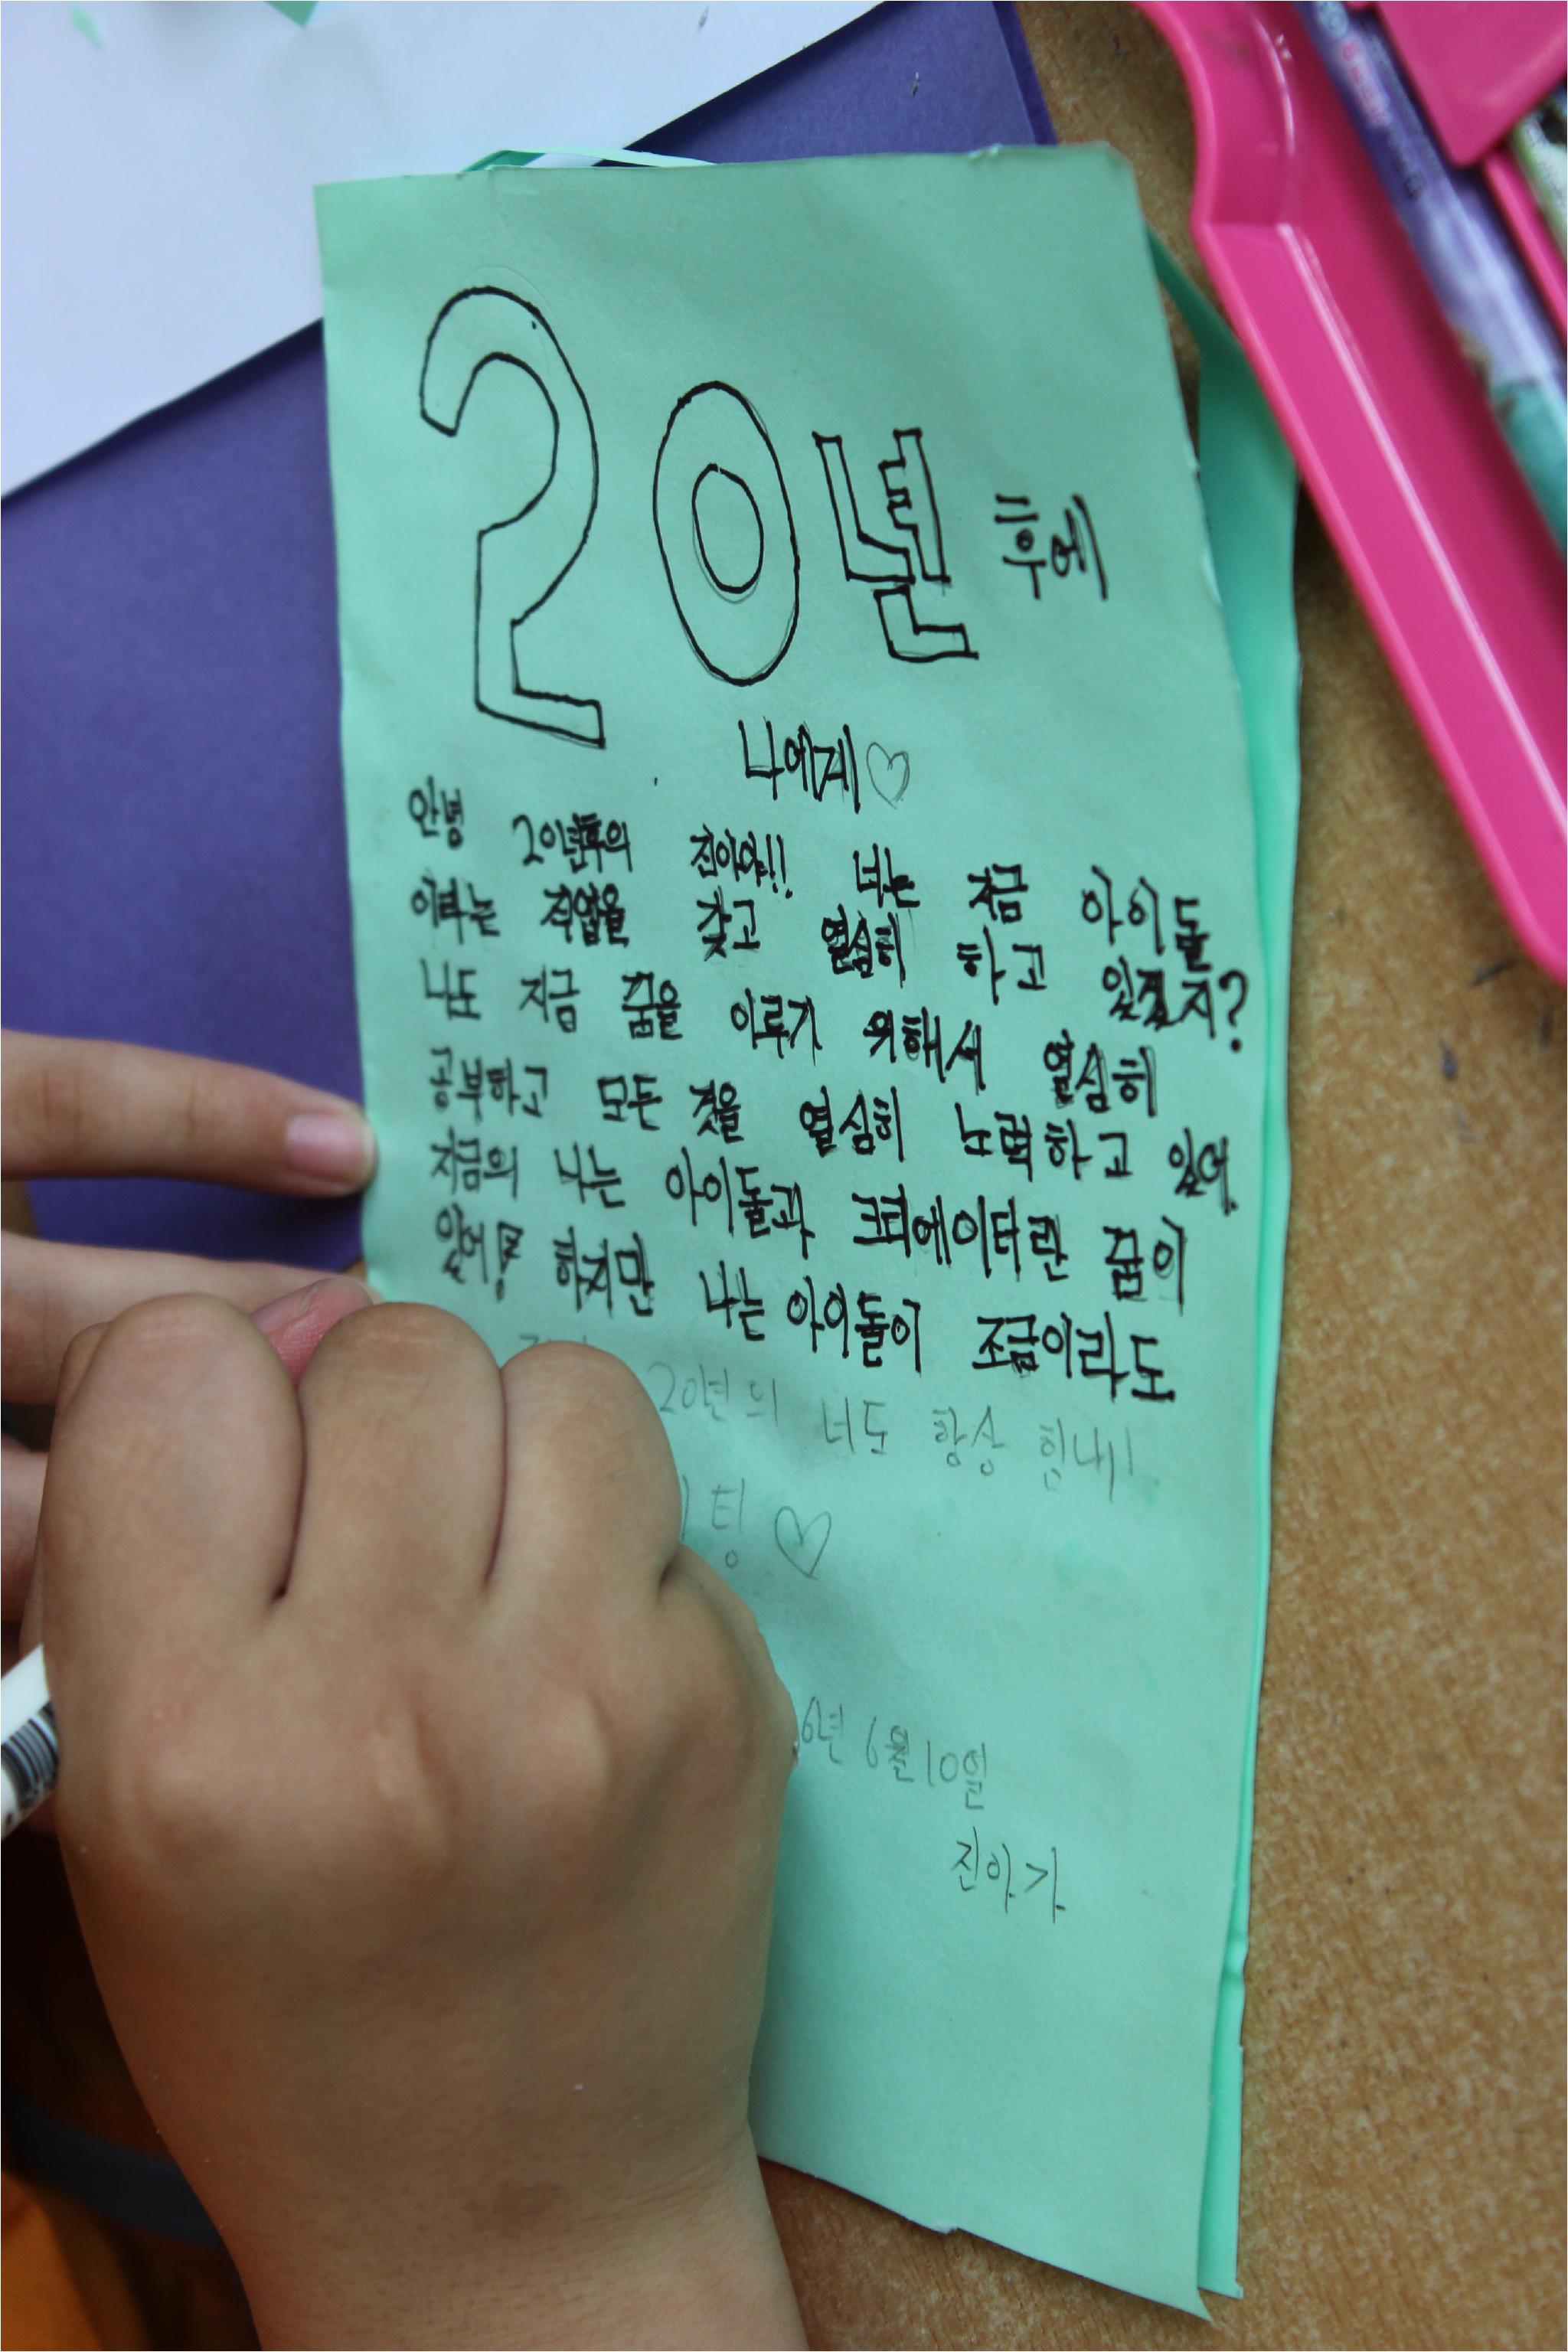 20년 후에
나에게♡
안녕 20년후의 진아야!! 너는 지금 아이돌
이라는 직업을 갖고 열심히 하고 있겠지?
나도 지금 꿈을 이루기 위해서 열심히
공부하고 모든 것을 열심히 노력하고 있어
지금의 나는 아이돌과 크리에이터란 꿈이
있어! 하지만 나는 아이돌이 조금이라도
20년의 너도 항상 힘내!!
팅♡
6년 6월 10일
진아가